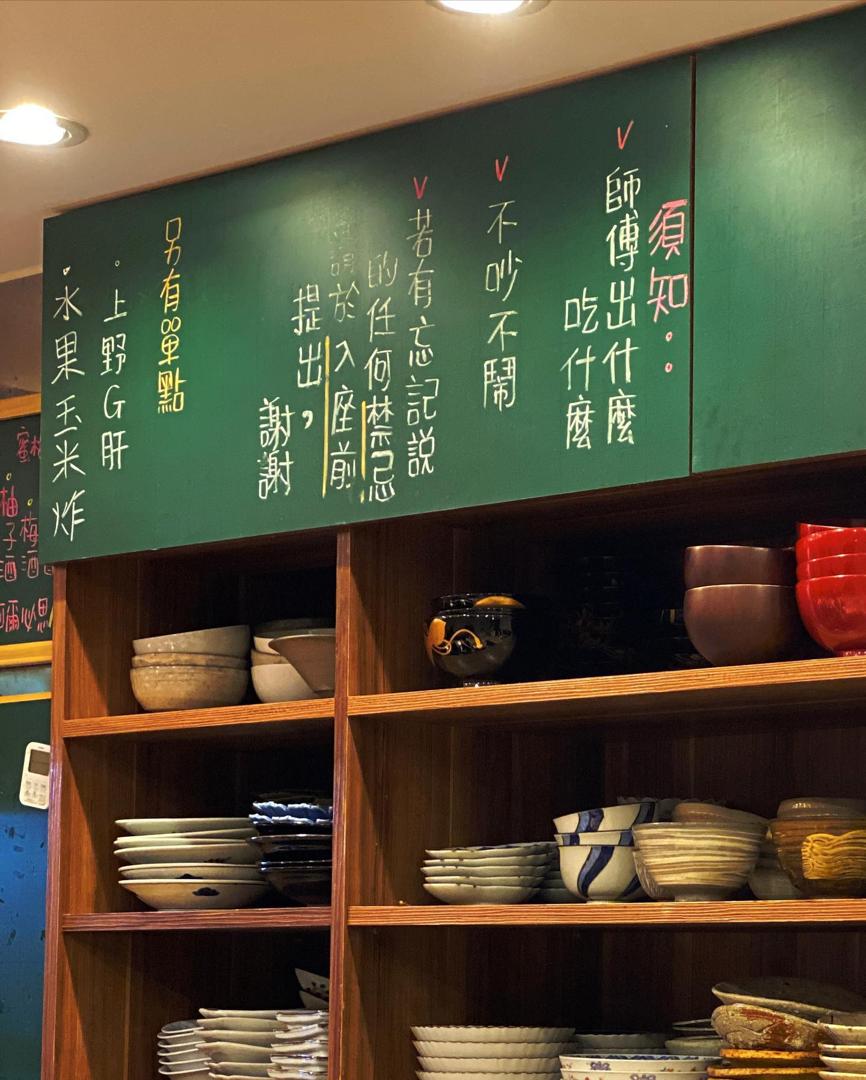 須知：
v師傅出什麼
吃什麼
v不吵不鬧
v若有忘記說
的任何禁忌
請於入座前
提出，
謝謝
另有單點
。上野G肝
。水果玉米炸
梅酒
柚子酒